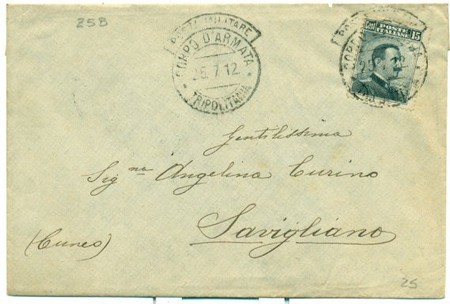 25B
POSTA MILITARE
CORPO D'ARMATA
25.7.12
TRIPOLITANIA
Cent. POSTE ITALIANE 15
Gentilissima
Sig.na Angelina Curino
Savigliano
(Cuneo)
25